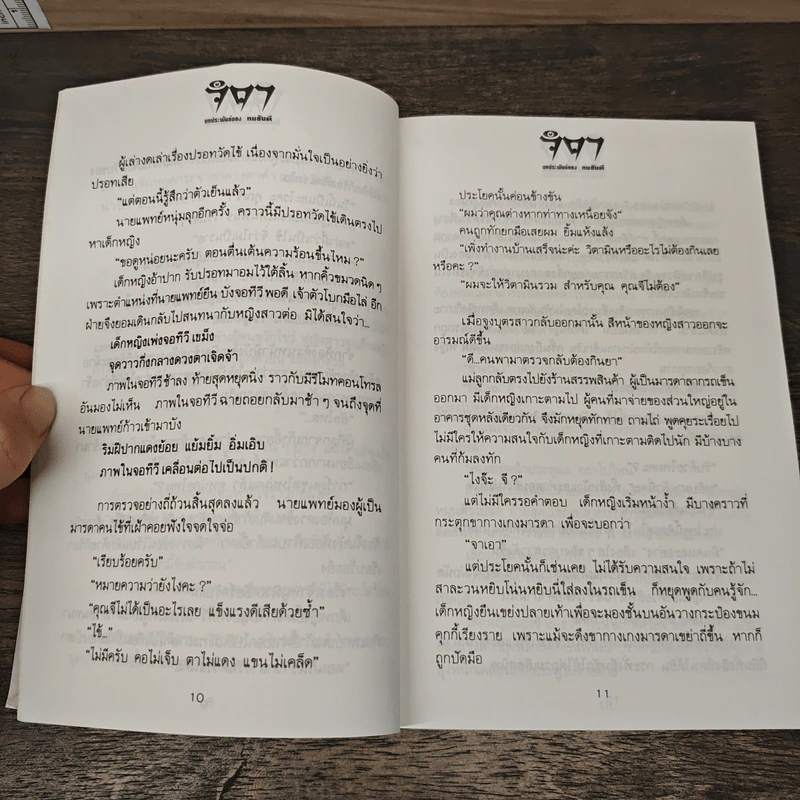 จิตา
บทประพันธ์ของ ทมยันตี
ผู้เล่างดเล่าเรื่องปรอทวัดไข้ เนื่องจากมั่นใจเป็นอย่างยิ่งว่า
ปรอทเสีย
“แต่ตอนนี้รู้สึกว่าตัวเย็นแล้ว”
นายแพทย์หนุ่มลุกอีกครั้ง คราวนี้มีปรอทวัดไข้เดินตรงไป
หาเด็กหญิง
“ขอดูหน่อยนะครับ ตอนตื่นเต้นความร้อนขึ้นไหม ?”
เด็กหญิงอ้าปาก รับปรอทมาอมไว้ใต้ลิ้น หากคิ้วขมวดนิดๆ
เพราะตำแหน่งที่นายแพทย์ยืน บังจอทีวีพอดี เจ้าตัวโบกมือไล่ อีก
ฝ่ายจึงยอมเดินกลับไปสนทนากับหญิงสาวต่อ มิได้สนใจว่า...
เด็กหญิงเพ่งจอทีวี เขม็ง
จุดวาวกึ่งกลางดวงตาเจิดจ้า
ภาพในจอทีวีช้าลง ท้ายสุดหยุดนิ่ง ราวกับมีรีโมทคอนโทรล
อันมองไม่เห็น ภาพในจอทีวีฉายถอยกลับมาช้าๆ จนถึงจุดที่
นายแพทย์ก้าวเข้ามาบัง
ริมฝีปากแดงย้อย แย้มยิ้ม อิ่มเอิบ
ภาพในจอทีวี เคลื่อนต่อไปเป็นปกติ !
การตรวจอย่างถี่ถ้วนสิ้นสุดลงแล้ว นายแพทย์มองผู้เป็น
มารดาคนไข้ที่เฝ้าคอยฟังใจจดใจจ่อ
“เรียบร้อยครับ”
“หมายความว่ายังไงคะ ?”
“คุณจีไม่ได้เป็นอะไรเลย แข็งแรงดีเสียด้วยซ้ำ”
“ไข้...”
“ไม่มีครับ คอไม่เจ็บ ตาไม่แดง แขนไม่เคล็ด”
10
จิตา
บทประพันธ์ของ ทมยันตี
ประโยคนั้นค่อนข้างขัน
“ผมว่าคุณต่างหากท่าทางเหนื่อยจัง”
คนถูกทักยกมือเสยผม ยิ้มแห้งแล้ง
“เพิ่งทำงานบ้านเสร็จน่ะค่ะ วิตามินหรืออะไรไม่ต้องกินเลย
หรือคะ ?”
“ผมจะให้วิตามินรวม สำหรับคุณ คุณจีไม่ต้อง”
เมื่อจูงบุตรสาวกลับออกมานั้น สีหน้าของหญิงสาวออกจะ
อารมณ์ดีขึ้น
“ดี...คนพามาตรวจกลับต้องกินยา”
แม่ลูกกลับตรงไปยังร้านสรรพสินค้า ผู้เป็นมารดาลากรถเข็น
ออกมา มีเด็กหญิงเกาะตามไป ผู้คนที่มาจ่ายของส่วนใหญ่อยู่ใน
อาคารชุดหลังเดียวกัน จึงมักหยุดทักทาย ถามไถ่ พูดคุยระเรื่อยไป
ไม่มีใครให้ความสนใจกับเด็กหญิงที่เกาะตามติดไปนัก มีบ้างบาง
คนที่ก้มลงทัก
“ไงจ๊ะ จี ?”
แต่ไม่มีใครรอคำตอบ เด็กหญิงเริ่มหน้าง้ำ มีบางคราวที่
กระตุกขากางเกงมารดา เพื่อจะบอกว่า
“จาเอา”
แต่ประโยคนั้นก็เช่นเคย ไม่ได้รับความสนใจ เพราะถ้าไม่
สาละวนหยิบโน่นหยิบนี่ใส่ลงในรถเข็น ก็หยุดพูดกับคนรู้จัก...
เด็กหญิงยืนเขย่งปลายเท้าเพื่อจะมองชั้นบนอันวางกระป๋องขนม
คุกกี้เรียงราย เพราะแม้จะดึงขากางเกงมารดาเขย่าถี่ขึ้น หากก็
ถูกปัดมือ
11